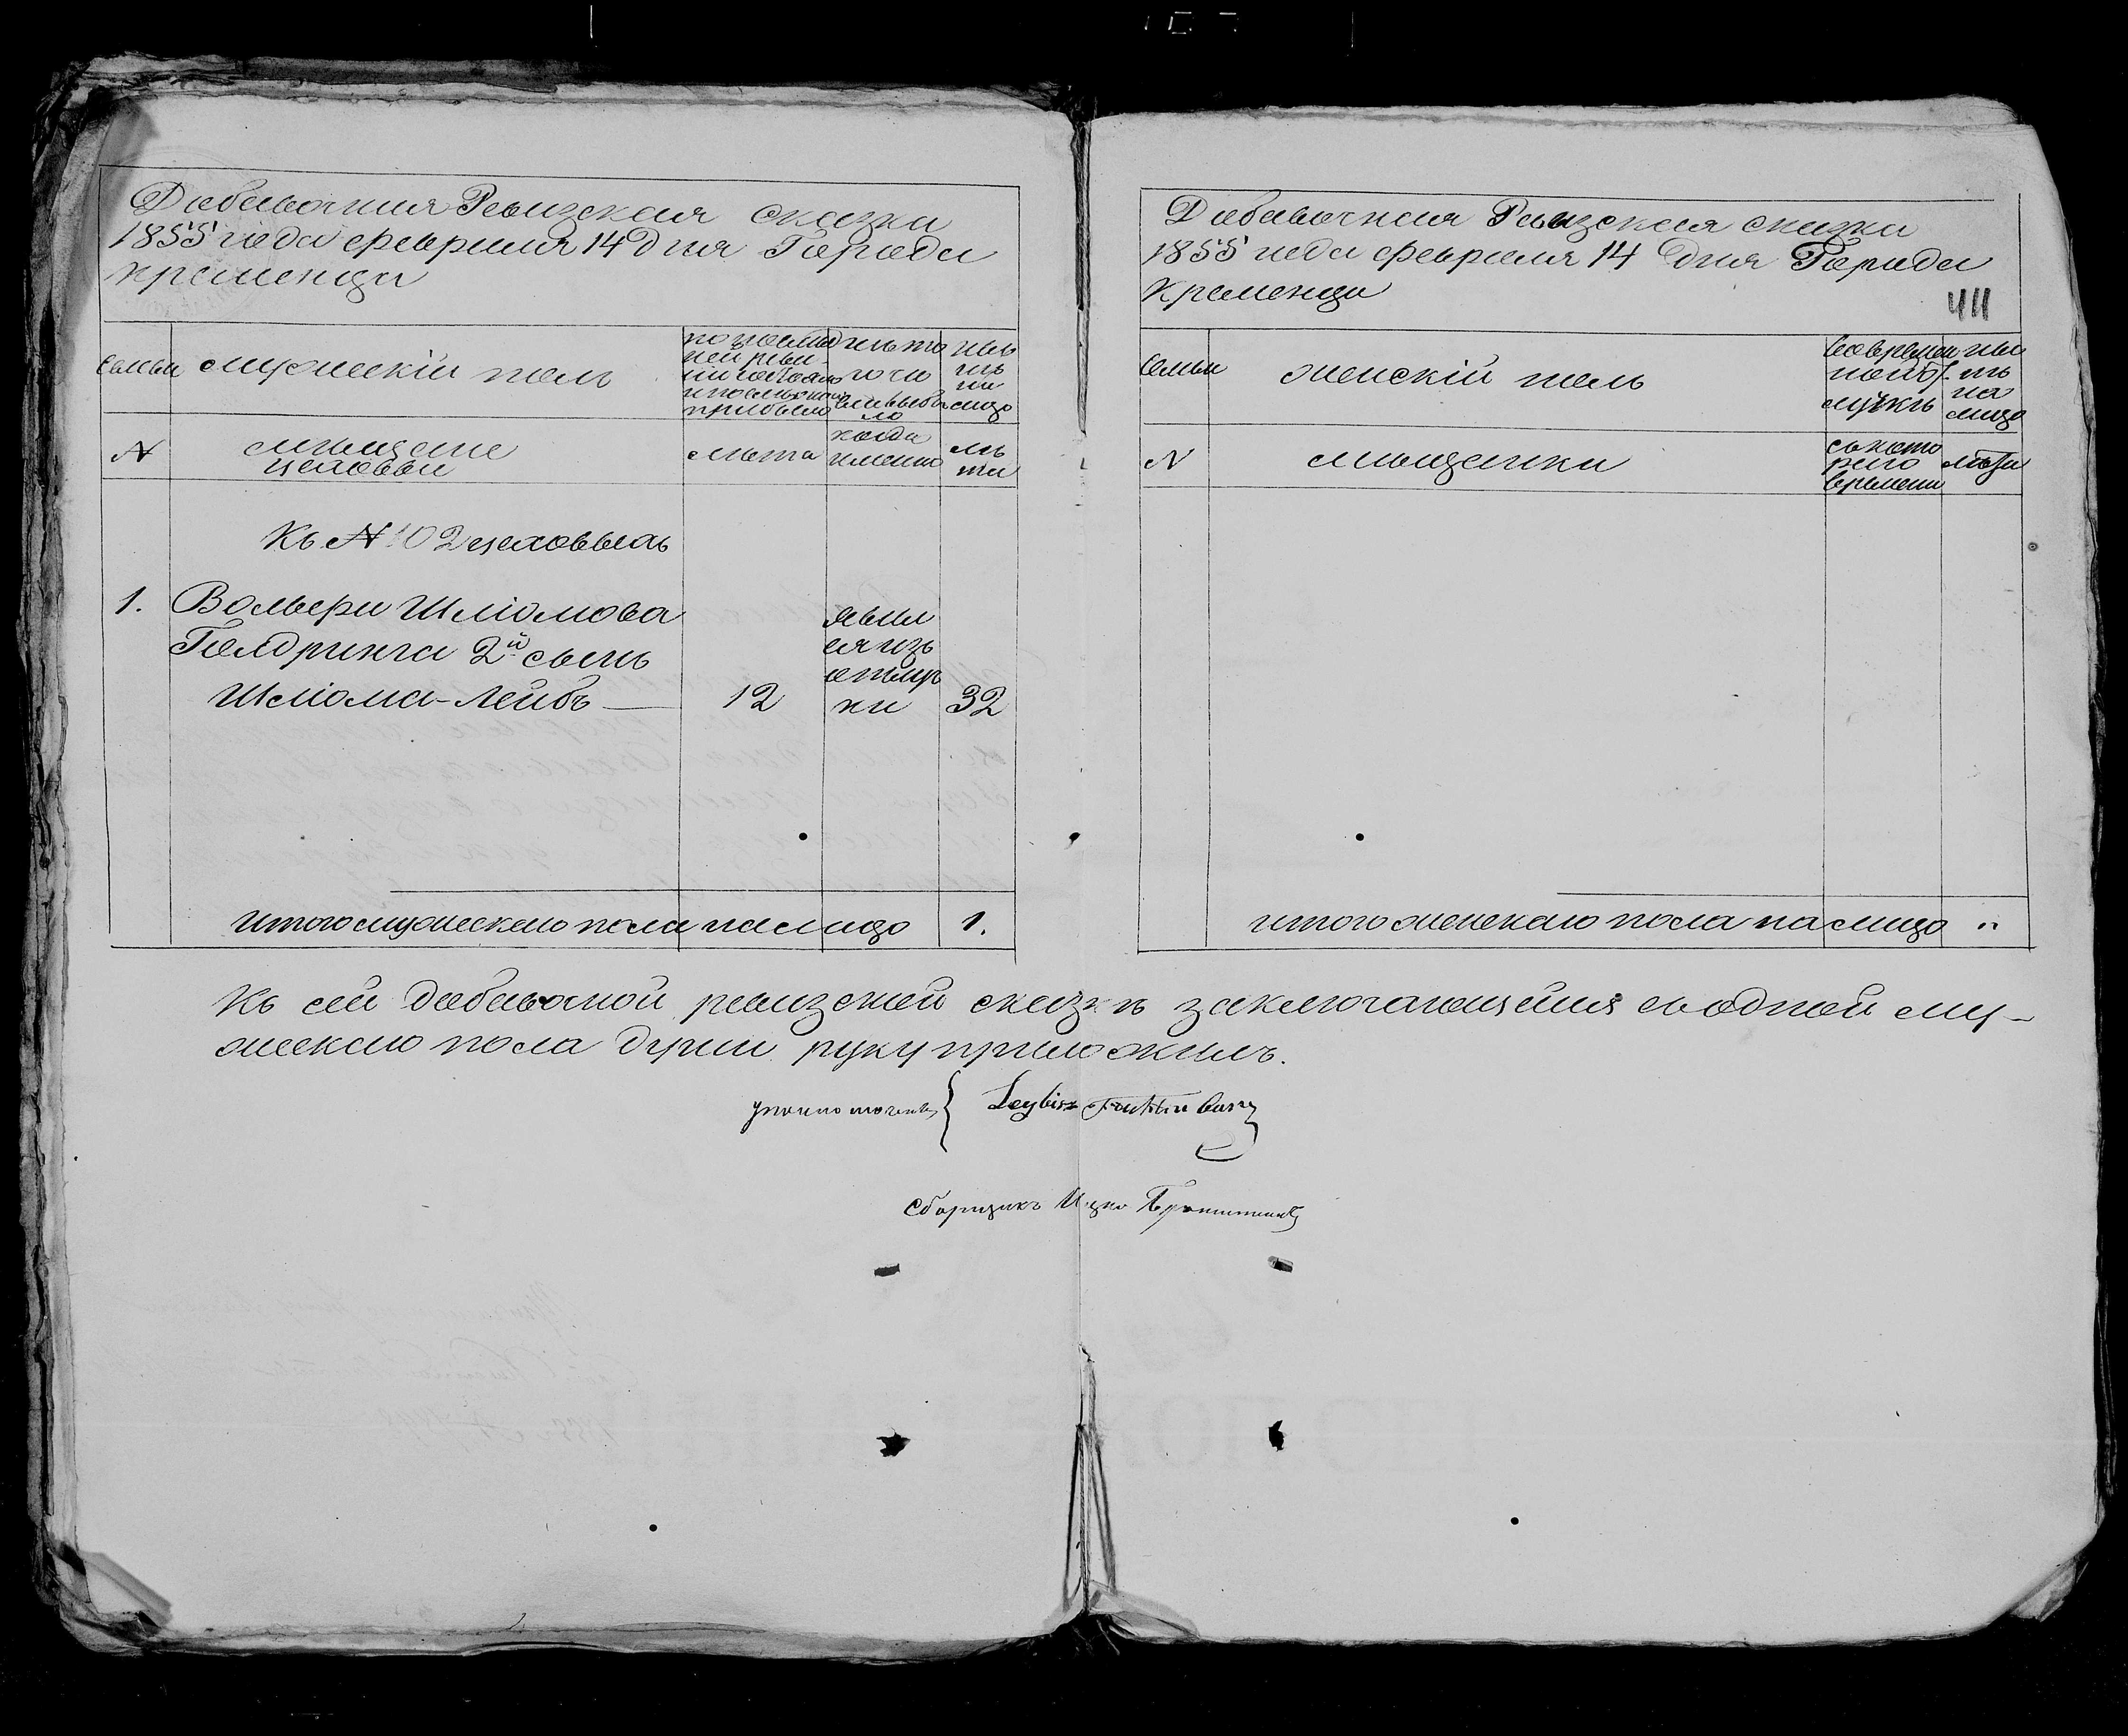 Добавочная Ревизская сказка
1855 года февраля 14 дня Города
Кременца
семьи
мужескій полъ
по последней ревизіи состояло и после оной прибыло
изъ того числа выбыло
ныне на лицо
N
мещане
цеховыи
лета
когда
именно
ле
та
Къ N 102 цеховыхъ
1. Вольфа Шліомова
Голдринга 2й сынъ
Шліома-Лейбъ — 12 32
явил
ся изъ
отлуч
ки
итого мужескаго пола на лицо 1.
Добавочная Ревизская сказка
1855 года февраля 14 дня Города
Кременца
411
семьи
женскій полъ
во времен
ной от
лучке
ны
не
на
лицо
N
мещанки
съ кото
раго
времени
лета
итого женскаго пола на лицо "
Къ сей добавочной ревизской сказке заключающейся въ одной му-
жескаго пола души руку приложилъ.
уполномочены { Leybisz
Сборщикъ Ицко